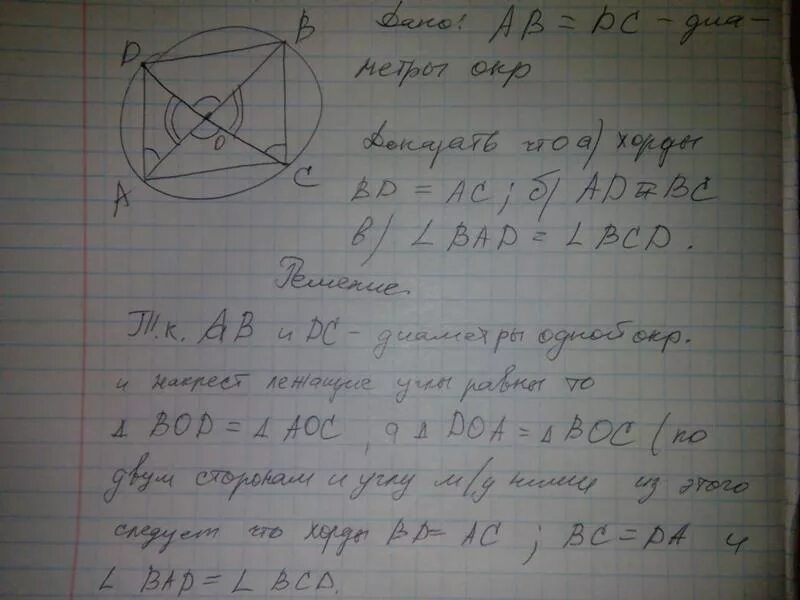 D
B
O
A
C
Дано: AB = DC - диа-
метры окр
Доказать что а) хорды
BD = AC; б) AD = BC
в) ∠ BAD = ∠ BCD.
Решение.
Т.к. AB и DC - диаметры одной окр.
и накрест лежащие углы равны то
Δ BOD = Δ AOC, а Δ DOA = Δ BOC (по
двум сторонам и углу м/у ними из этого
следует что хорды BD = AC ; BC = DA и
∠ BAD = ∠ BCD.